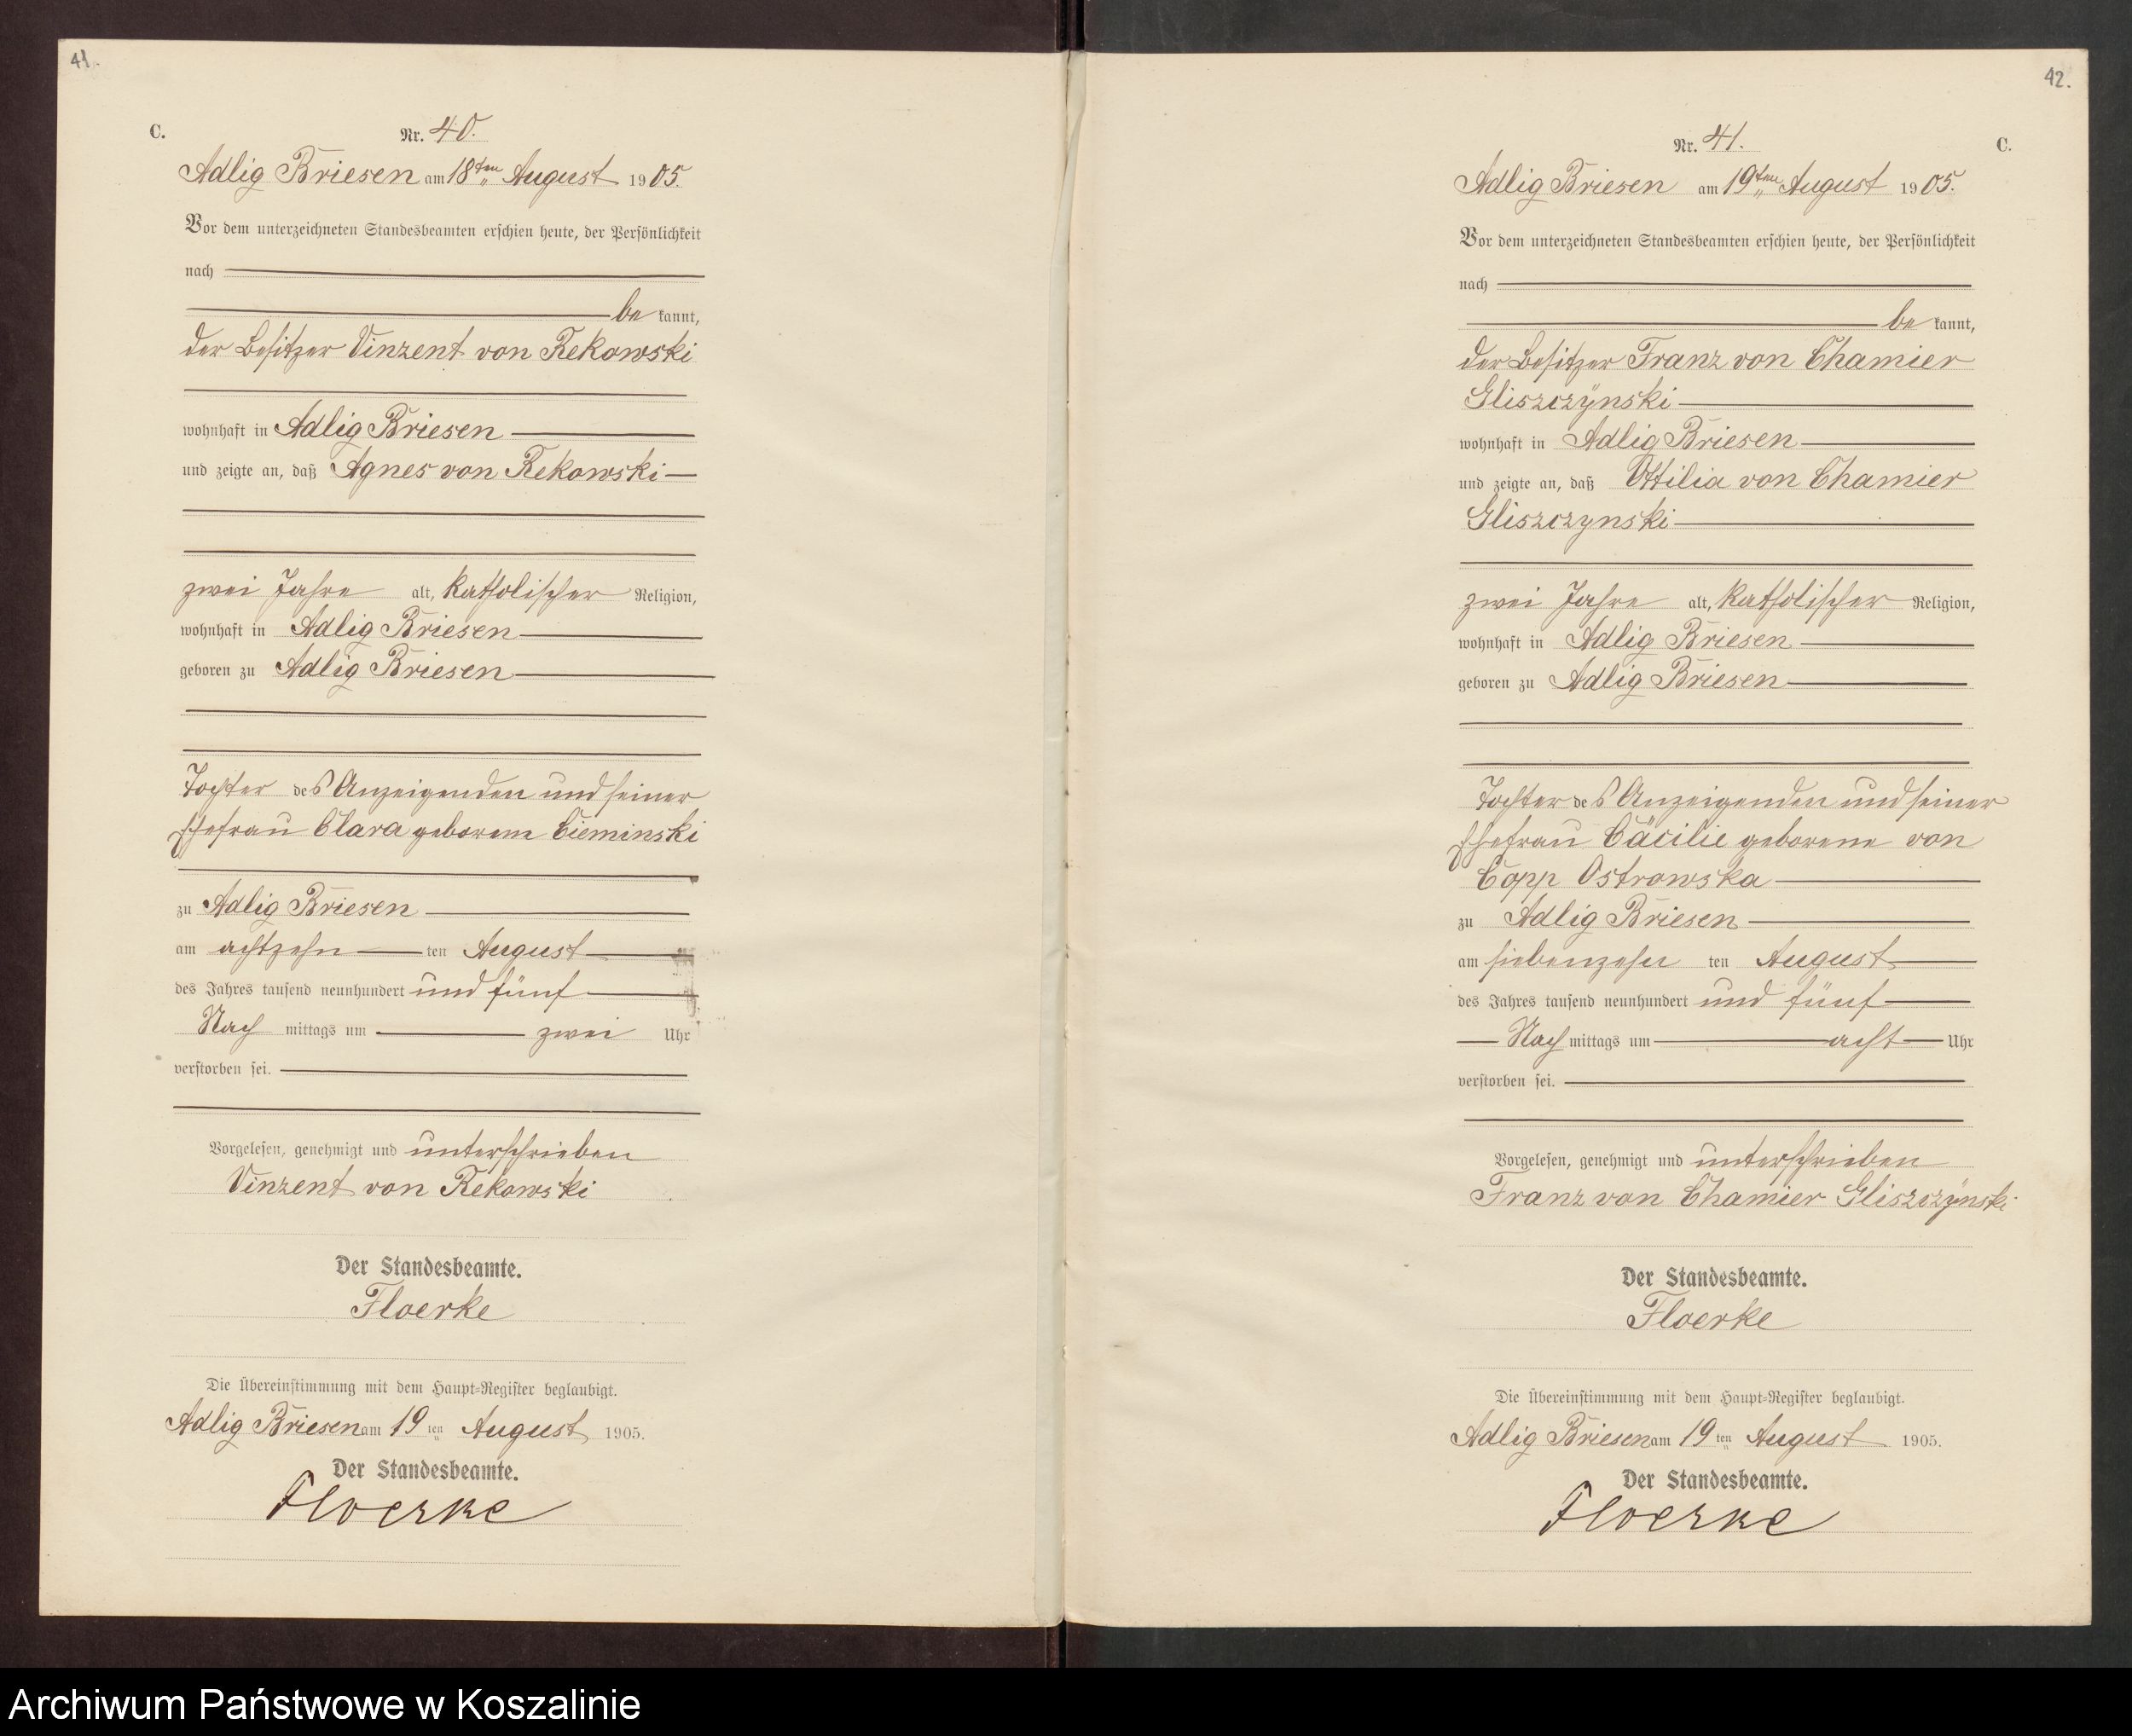 41.
C.
Nr. 40.
Adlig Briesen am 18ten August 1905.
Vor dem unterzeichneten Standesbeamten erschien heute, der Persönlichkeit
nach
be kannt,
der Besitzer Vinzent von Rekowski
wohnhaft in Adlig Briesen
und zeigte an, daß Agnes von Rekowski
zwei Jahre alt, katholischer Religion,
wohnhaft in Adlig Briesen
geboren zu Adlig Briesen
Tochter des Anzeigenden und seiner
Ehefrau Clara geborene Cieminski
zu Adlig Briesen
am achtzehn ten August
des Jahres tausend neunhundert und fünf
Nach mittags um zwei Uhr
verstorben sei.
Vorgelesen, genehmigt und unterschrieben
Vinzent von Rekowski
Der Standesbeamte.
Floerke
Die Übereinstimmung mit dem Haupt-Register beglaubigt.
Adlig Briesen am 19 ten August 1905.
Der Standesbeamte.
Floerke
42.
Nr. 41.
C.
Adlig Briesen am 19ten August 1905.
Vor dem unterzeichneten Standesbeamten erschien heute, der Persönlichkeit
nach
be kannt,
der Besitzer Franz von Chamier
Gliszczÿnski
wohnhaft in Adlig Briesen
und zeigte an, daß Ottilia von Chamier
Gliszczynski
zwei Jahre alt, katholischer Religion,
wohnhaft in Adlig Briesen
geboren zu Adlig Briesen
Tochter des Anzeigenden und seiner
Ehefrau Cäcilie geborene von
Copp Ostrowska
zu Adlig Briesen
am siebenzehn ten August
des Jahres tausend neunhundert und fünf
Nach mittags um acht Uhr
verstorben sei.
Vorgelesen, genehmigt und unterschrieben
Franz von Chamier Gliszczÿnski
Der Standesbeamte.
Floerke
Die Übereinstimmung mit dem Haupt-Register beglaubigt.
Adlig Briesen am 19 ten August 1905.
Der Standesbeamte.
Floerke
Archiwum Państwowe w Koszalinie